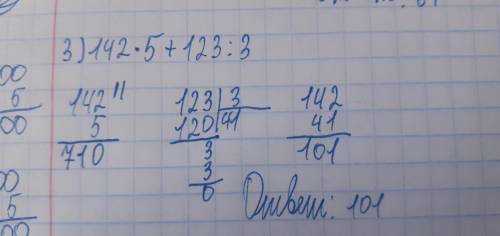 00
5
00
00
5
3) 142 · 5 + 123 : 3
142 "
5
710
123 | 3
120 | 41
3
3
0
142
41
101
Ответ: 101